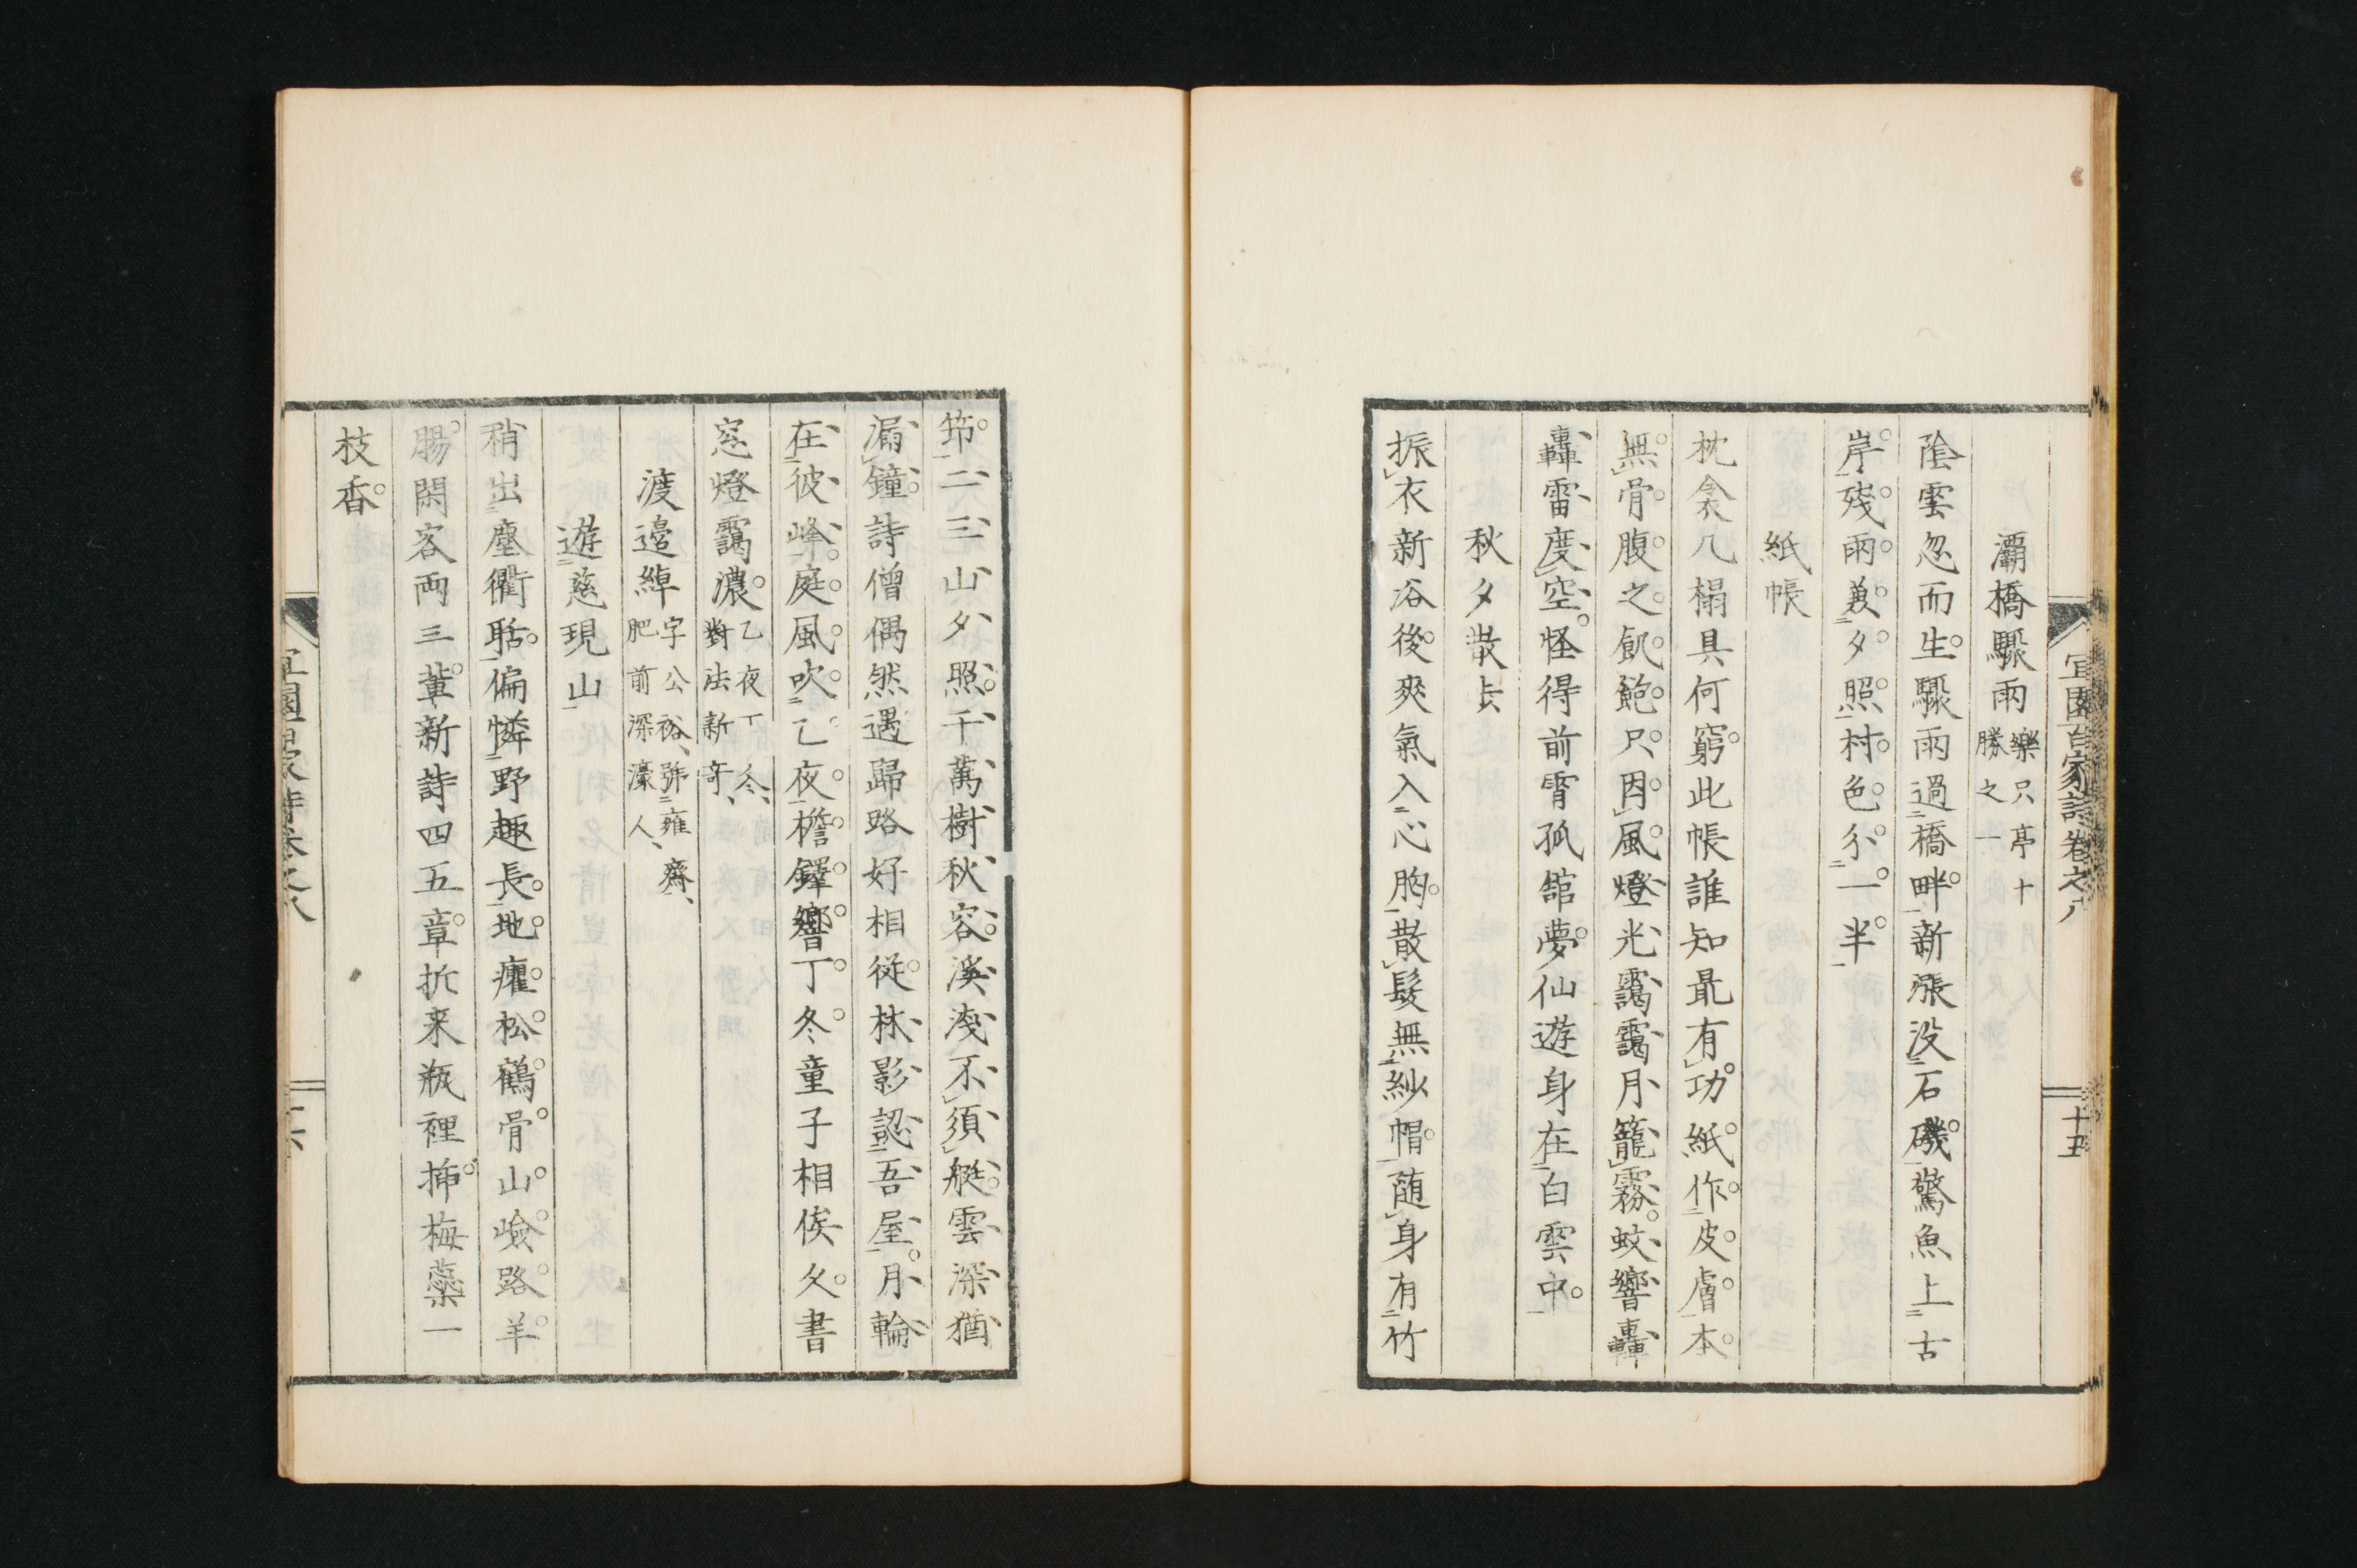 宜園百家詩卷之八
十五
灞橋驟雨樂只亭十勝之一
陰雲忽而生。驟雨過橋畔。新漲没石磯。驚魚上古
岸。殘雨兼夕照。村色分一半。
紙帳
枕衾几榻具何窮。此帳誰知最有功。紙作皮膚本
無骨。腹之飢飽只因風。燈光靄靄月籠霧。蚊響轟
轟雷度空。怪得前宵孤館夢。仙遊身在白雲中。
秋夕散步
振衣新浴後。爽氣入心胸。散髮無紗帽。随身有竹
節。二三山夕照。千萬樹秋容。溪淺不須艇。雲深猶
漏鐘。詩僧偶然遇。歸路好相從。林影認吾屋。月輪
在彼峰。庭風吹乙夜。檐鐸響丁冬。童子相俟久。書
窓燈靄濃。乙夜丁冬、對法新奇、
渡邉綽字公裕、號雍齋、肥前深濠人、
遊慈現山
稍出塵衢聒。偏憐野趣長。地癯松鶴骨。山嶮路羊
腸。閑客両三輩。新詩四五章。折来瓶裡挿。梅蘂一
枝香。